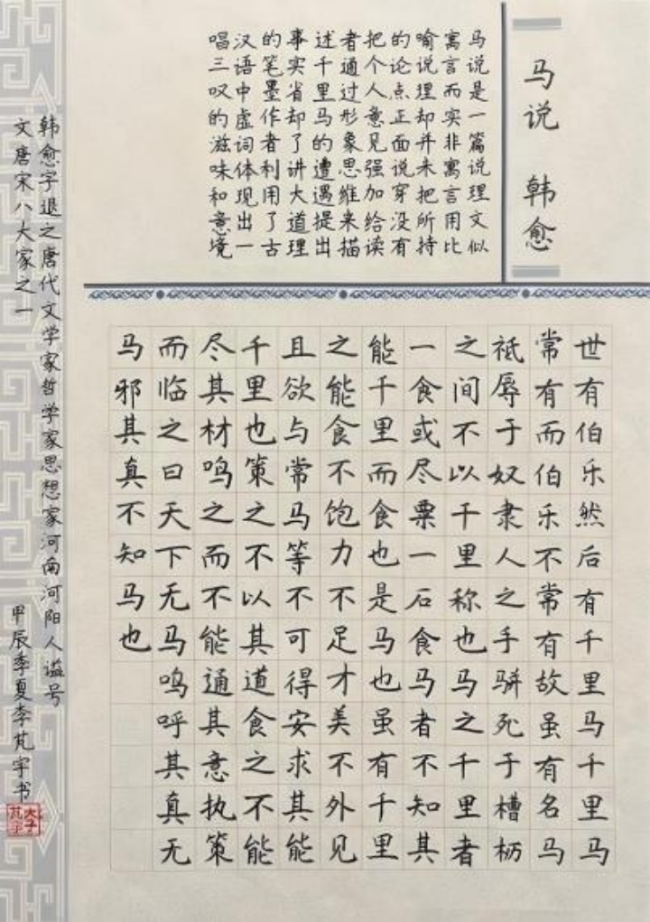 马说 韩愈
马说是一篇说理文似
寓言而实非寓言用比
喻说理却并未把所持
的论点正面说穿没有
把个人意见强加给读
者通过形象思维来描
述千里马的遭遇提出
事实省却了讲大道理
的笔墨作者利用了古
汉语中虚词体现出一
唱三叹的滋味和意境
世有伯乐然后有千里马千里马
常有而伯乐不常有故虽有名马
祗辱于奴隶人之手骈死于槽枥
之间不以千里称也马之千里者
一食或尽粟一石食马者不知其
能千里而食也是马也虽有千里
之能食不饱力不足才美不外见
且欲与常马等不可得安求其能
千里也策之不以其道食之不能
尽其材鸣之而不能通其意执策
而临之曰天下无马鸣呼其真无
马邪其真不知马也
韩愈字退之唐代文学家哲学家思想家河南河阳人谥号
文唐宋八大家之一
甲辰季夏李芃宇书